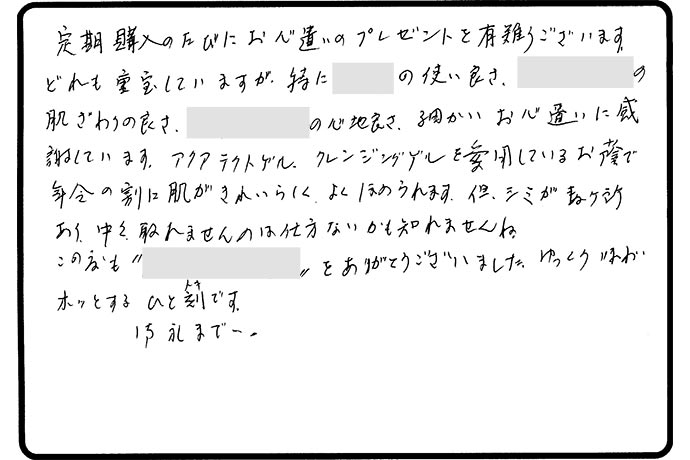 定期購入のたびにお心遣いのプレゼントを有難うございます。
どれも重宝していますが、特に の使い良さ、 の
肌ざわりの良さ、 の心地良さ、細かいお心遣いに感
謝しています。アクアテクトゲル、クレンジングゲルを愛用しているお蔭で
年令の割に肌がきれいらしく、よくほめられます。但、シミが数ヶ所
あり、中々取れませんのは仕方ないかも知れませんね
この度も〝 〟をありがとうございました。ゆっくり
ホッとするひと刻トキです。
御礼まで―。